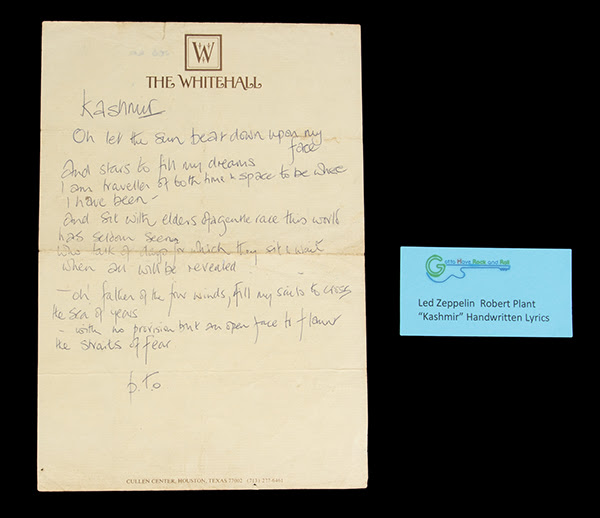 W
THE WHITEHALL
Kashmir
Oh let the sun beat down upon my
face
And stars to fill my dreams
I am traveller of both time + space to be where
I have been -
And sit with elders of a gentle race this world
has seldom seen
Who talk of days for which they sit & wait
When all will be revealed
- oh' father of the four winds, fill my sails to cross
the sea of years
- with no provision but an open face to flaunt
the straits of fear
p.t.o
CULLEN CENTER, HOUSTON, TEXAS 77002 (713)
Gotta Have Rock and Roll
Led Zeppelin Robert Plant
"Kashmir" Handwritten Lyrics